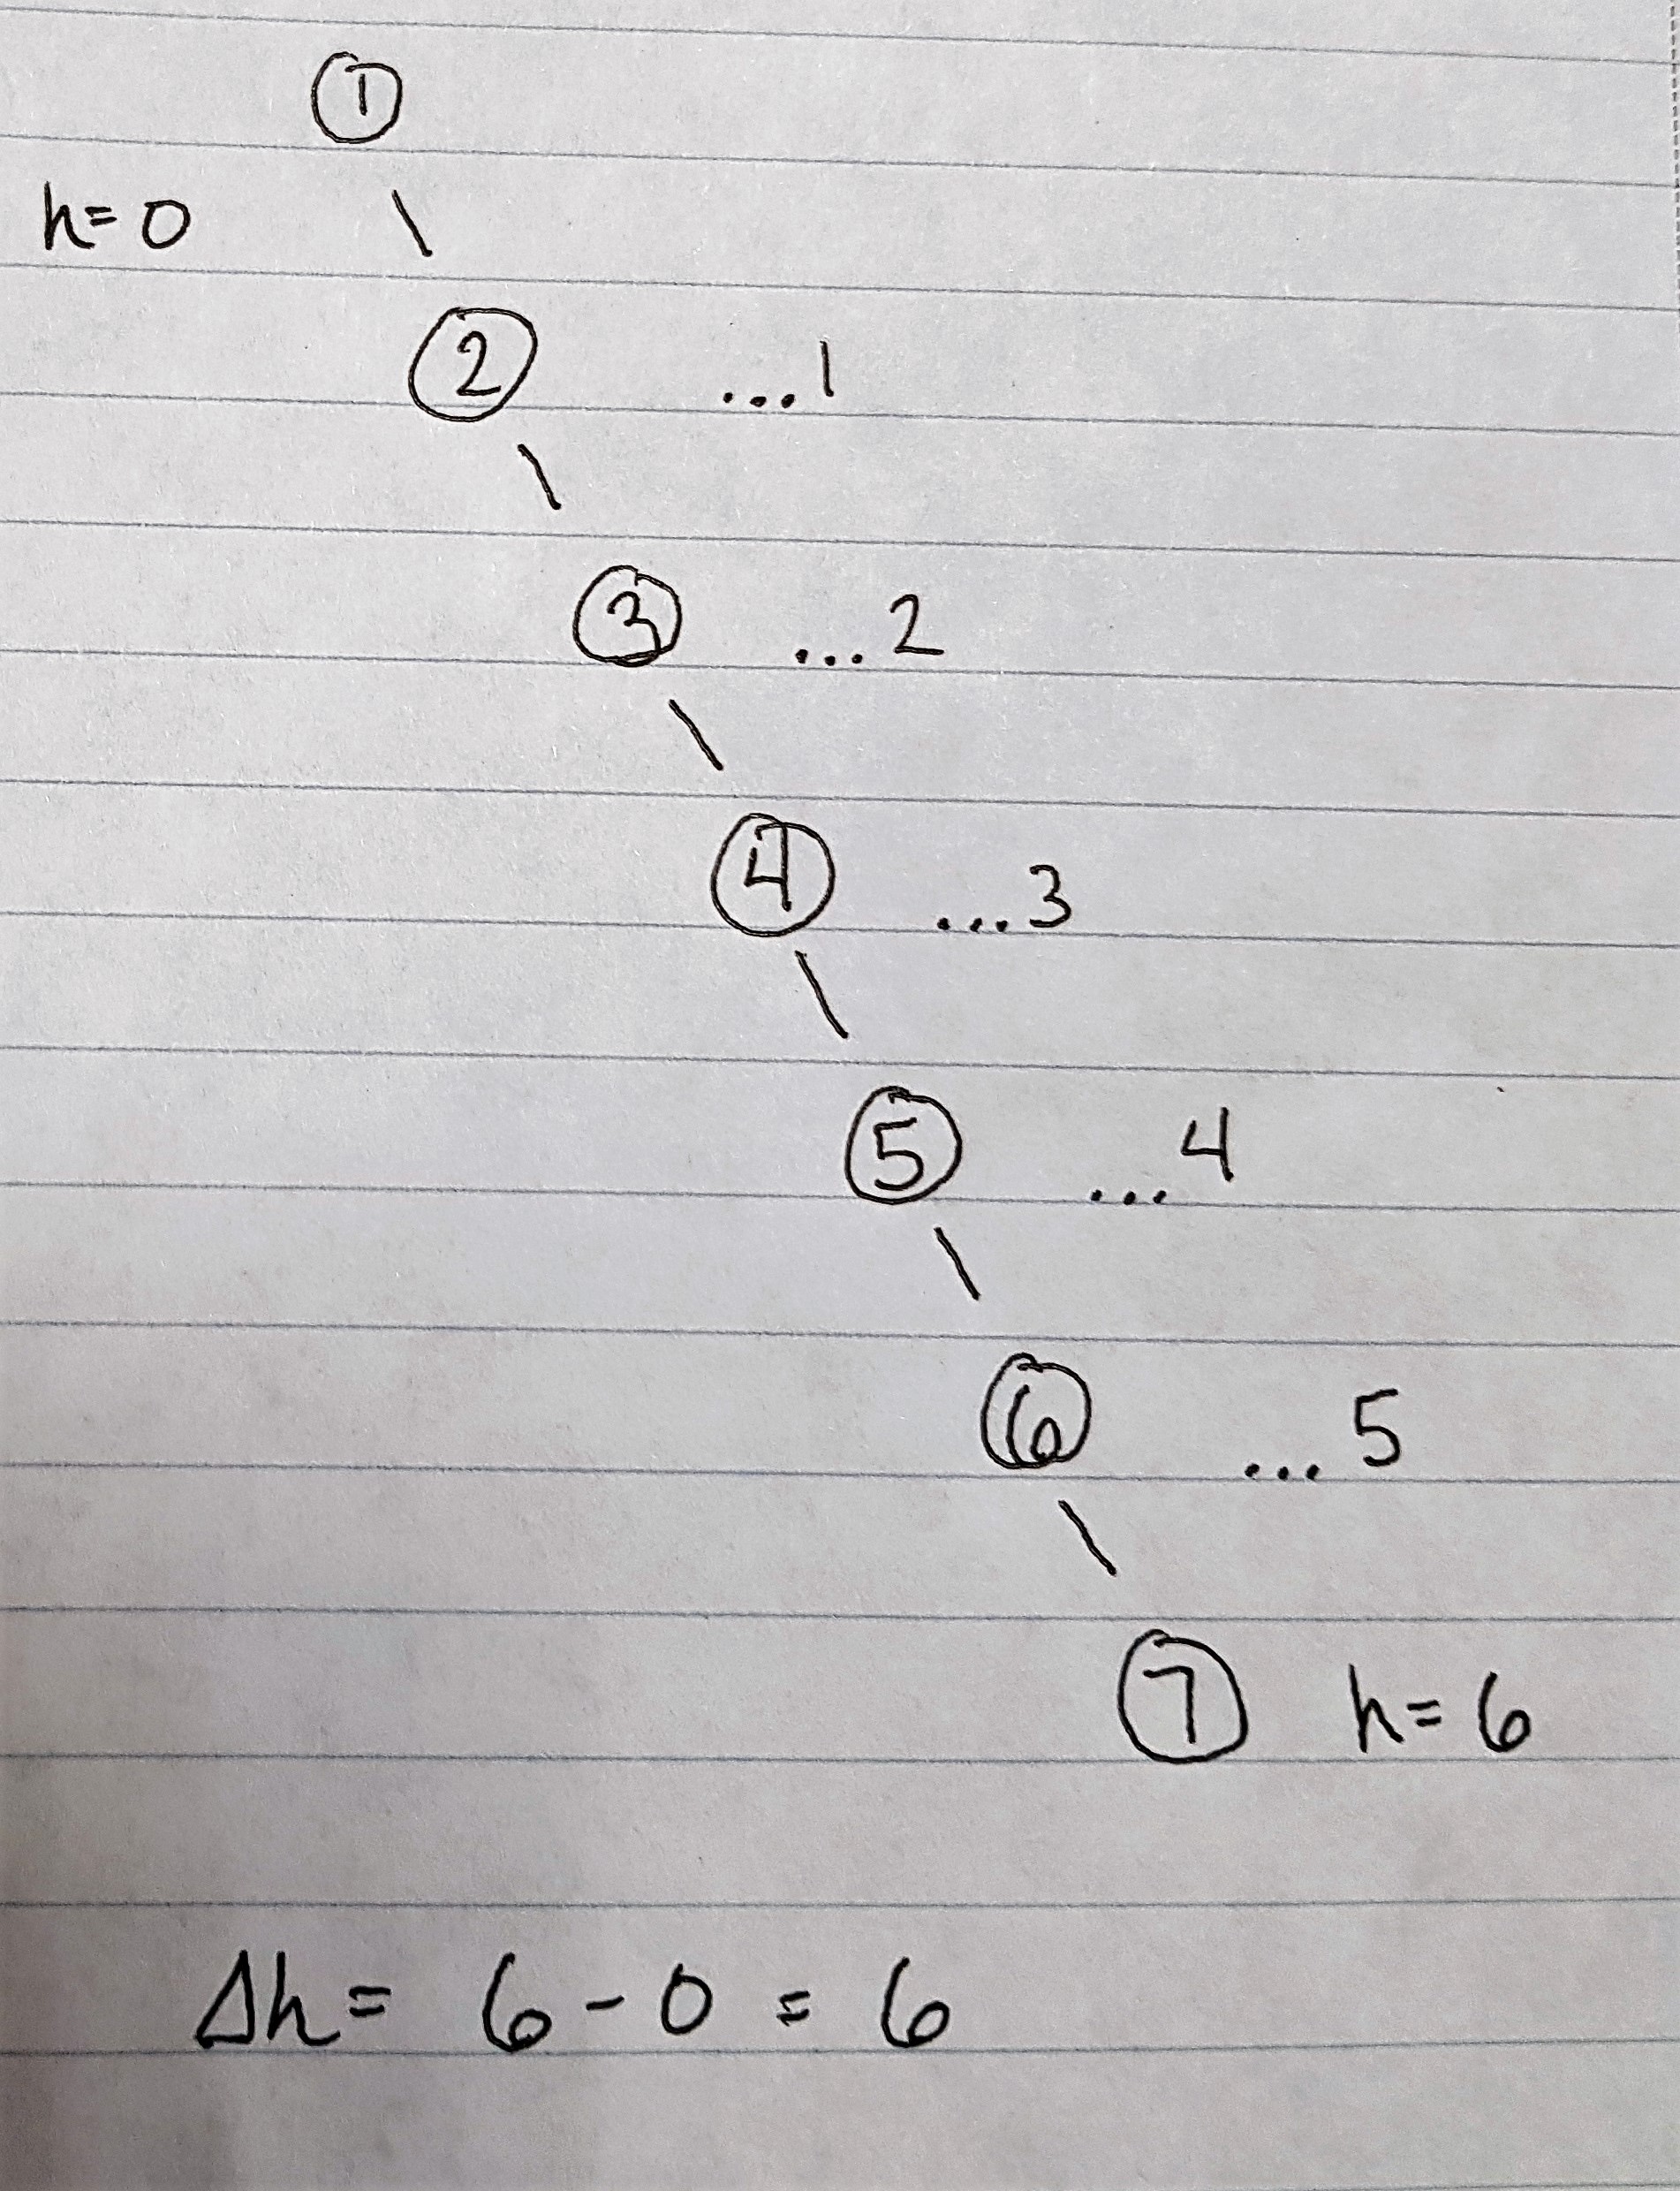 1
h= 0
2 ...1
3 ...2
4 ...3
5 ...4
6 ...5
7 h= 6
Δh= 6 - 0 = 6